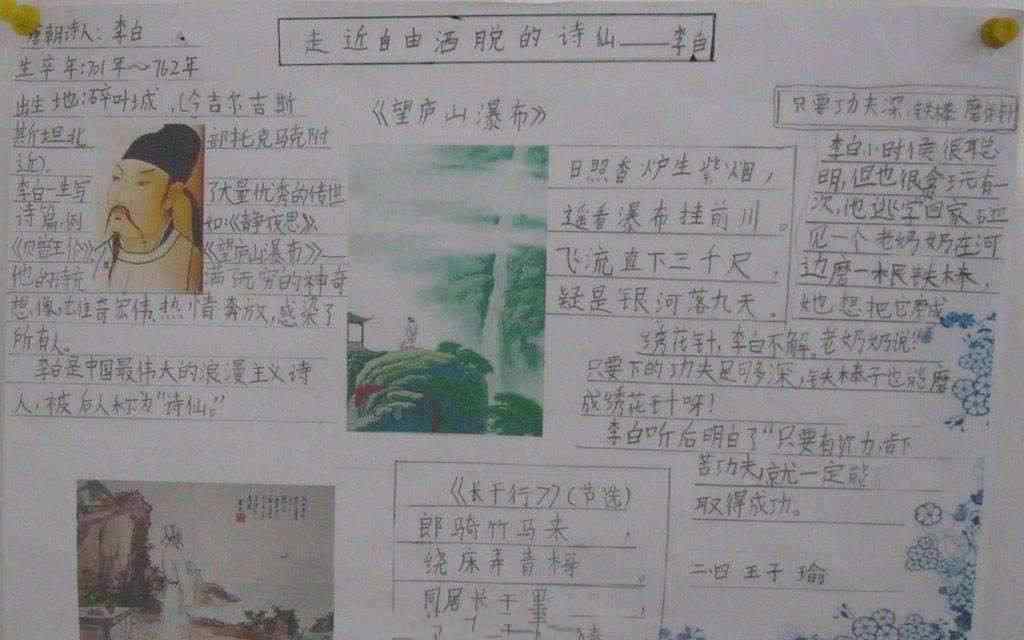 走近自由洒脱的诗仙——李白
唐朝诗人：李白
生卒年:701年～762年
出生地:碎叶城，(今吉尔吉斯
斯坦北部托克马克附
近)。
李白一生写了大量优秀的传世
诗篇,例如《静夜思》
《望庐山瀑布》
他的诗
想像,雄奇宏伟,热情奔放,感染了
所有人。
李白是中国最伟大的浪漫主义诗
人,被后人称为"诗仙。"
《望庐山瀑布》
日照香炉生紫烟，
遥看瀑布挂前川。
飞流直下三千尺，
疑是银河落九天。
只要功夫深,铁棒磨
李白小时候很聪
明,但也很贪玩有一
次,他逃学回家
见一个老奶奶在河
边磨一根铁棒，
她想把它磨成
绣花针,李白不解,老奶奶说:
只要下的功夫足够深,铁棒子也能磨
成绣花针呀!
李白听后明白了"只要有
苦功夫,就一定能
取得成功。
二四 王子瑜
《长干行》(节选)
郎骑竹马来，
绕床弄青梅。
同居长干里，